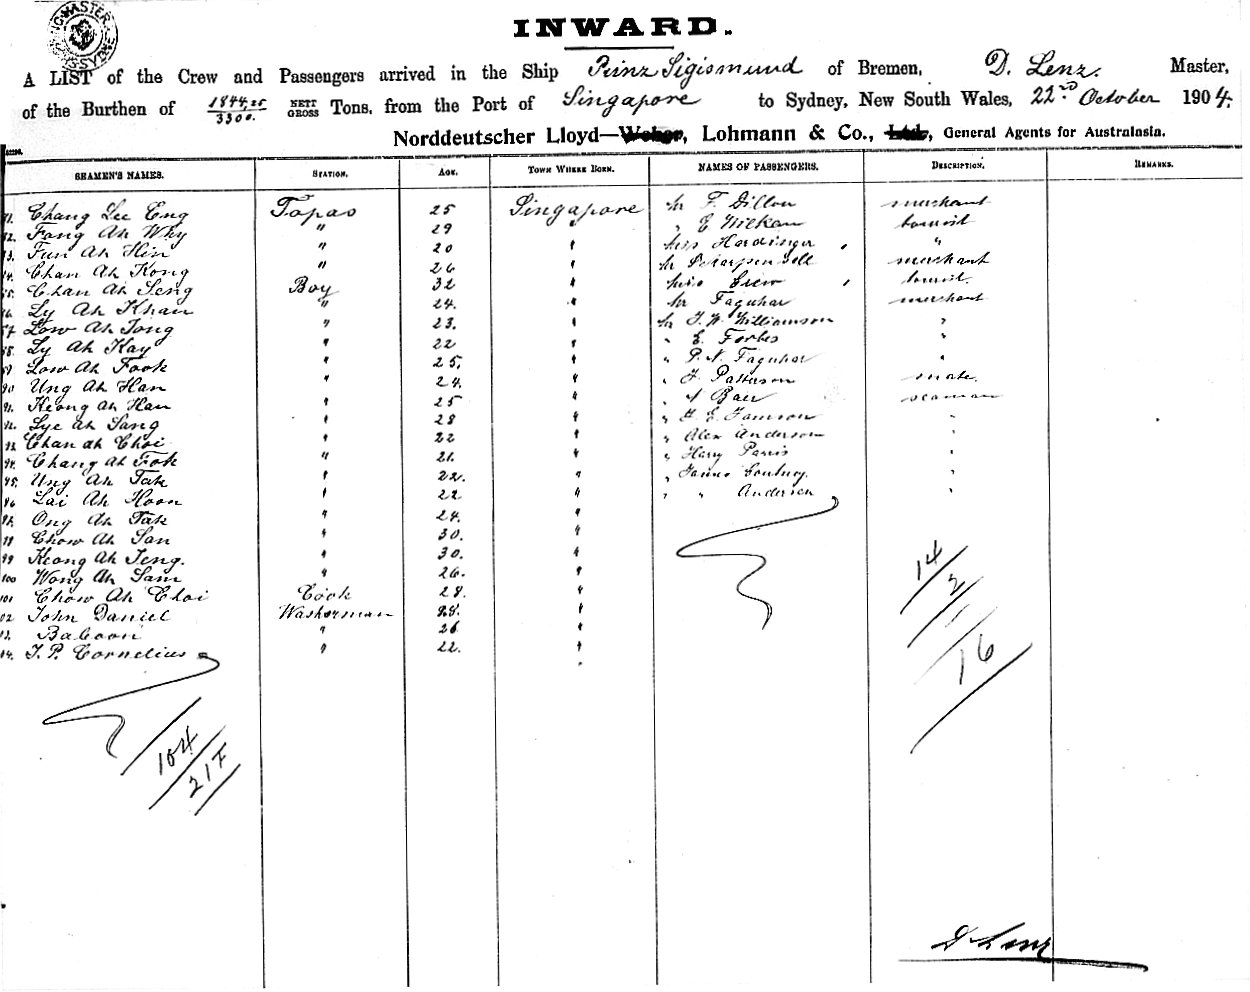 INWARD.
A LIST of the Crew and Passengers arrived in the Ship Prinz Sigismund of Bremen, D. Lenz. Master,
of the Burthen of 1844.25 / 3300. NETT GROSS Tons, from the Port of Singapore to Sydney, New South Wales, 22nd October 1904.
Norddeutscher Lloyd—Weber, Lohmann & Co., Ltd., General Agents for Australasia.
SEAMEN'S NAMES. STATION. AGE. TOWN WHERE BORN. NAMES OF PASSENGERS. DESCRIPTION. REMARKS.
81. Chang Lee Eng Topas 25 Singapore Mr F. Dillon merchant
82. Fong Ah Why " 29 " " E tourist
83. Fun Ah Hin " 20 " Miss Hardinger "
84. Chan Ah Kong " 26 " Mr merchant
85. Chan Ah Seng Boy 32 " Miss tourist.
86. Ly Ah Khan " 24. " Mr Faquhar merchant
87. Low Ah Tong " 23. " Mr J. W. Williamson "
88. Ly Ah Kay " 22 " " E. Forbes "
89. Low Ah Fook " 25. " " P. N. Faquhar "
90 Ung Ah Han " 24. " " J. Patterson mate.
91. Keong Ah Han " 25 " " Baer seaman
92. Lye Ah Sang " 28 " " E. "
93. Chan ah Choi " 22 " " Alex Anderson "
94. Chang Ah Fok " 21. " " Harry Parris "
95. Ung Ah Tak " 22. " " "
96 Lai Ah Hoon " 22 " " " Anderson "
98. Ong Ah Tak " 24. "
98 Chow Ah San " 30. "
99 Keong Ah Seng. " 30. "
100 Wong Ah Sam " 26. "
101 Chow Ah Choi Cook 28. "
102 John Daniel Washerman 28. "
103. Baboon " 26 "
104. J. P. Cornelius " 22. "
14
2
16
104
217
D. Lenz